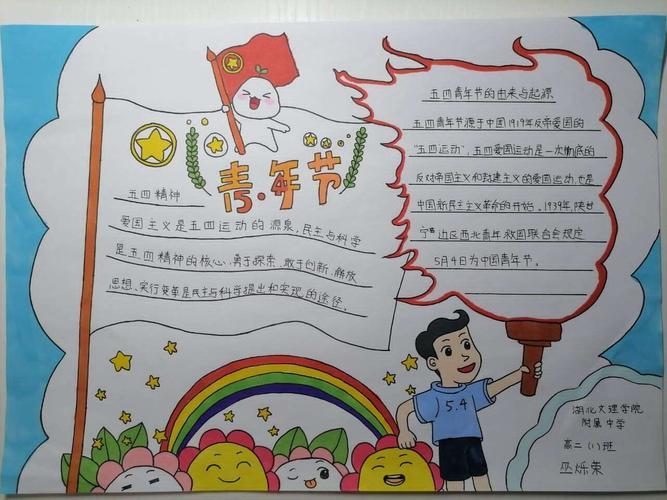 青·年节
五四精神
爱国主义是五四运动的源泉，民主与科学
是五四精神的核心、勇于探索、敢于创新、解放
思想、实行变革是民主与科学提出和实现的途径、
五四青年节的由来与起源
五四青年节源于中国1919年反帝爱国的
"五四运动"，五四爱国运动是一次彻底的
反对帝国主义和封建主义的爱国运动，也是
中国新民主主义革命的开始。1939年，陕甘
宁边区西北青年救国联合会规定
5月4日为中国青年节。
5.4
湖北文理学院
附属中学
高二（1）班
巫烁荣